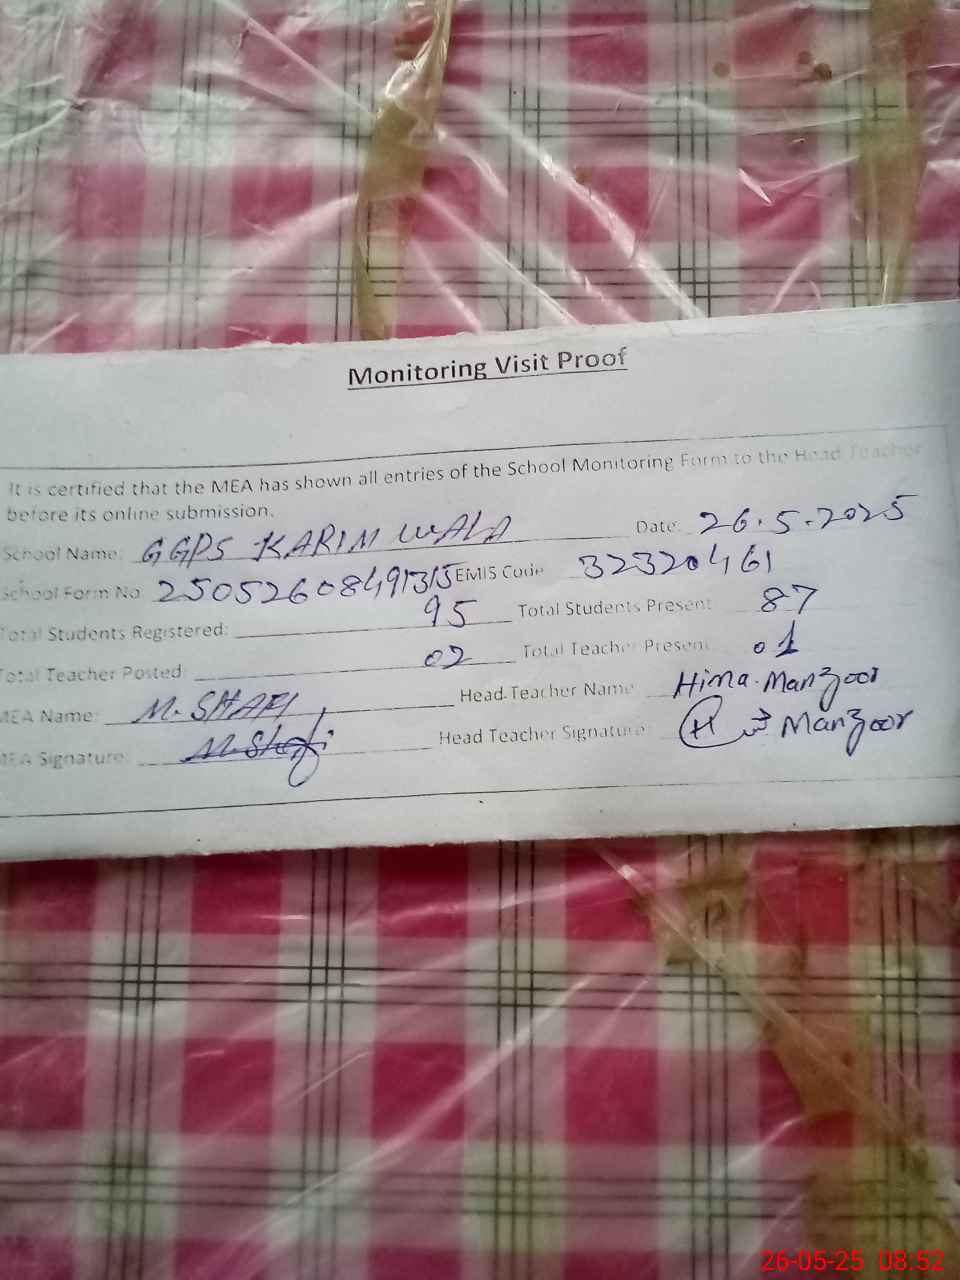 Monitoring Visit Proof
It is certified that the MEA has shown all entries of the School Monitoring Form to the Head Teacher
before its online submission.
School Name: GGPS KARIM WALA Date: 26.5.2025
School Form No 25052608491315 EMIS Code 32320461
Total Students Registered: 95 Total Students Present 87
Total Teacher Posted: 02 Total Teacher Present 01
MEA Name: M. SHAFI Head Teacher Name Hina Manzoor
MEA Signature: M. Shafi Head Teacher Signature: Manzoor
26-05-25 08:52